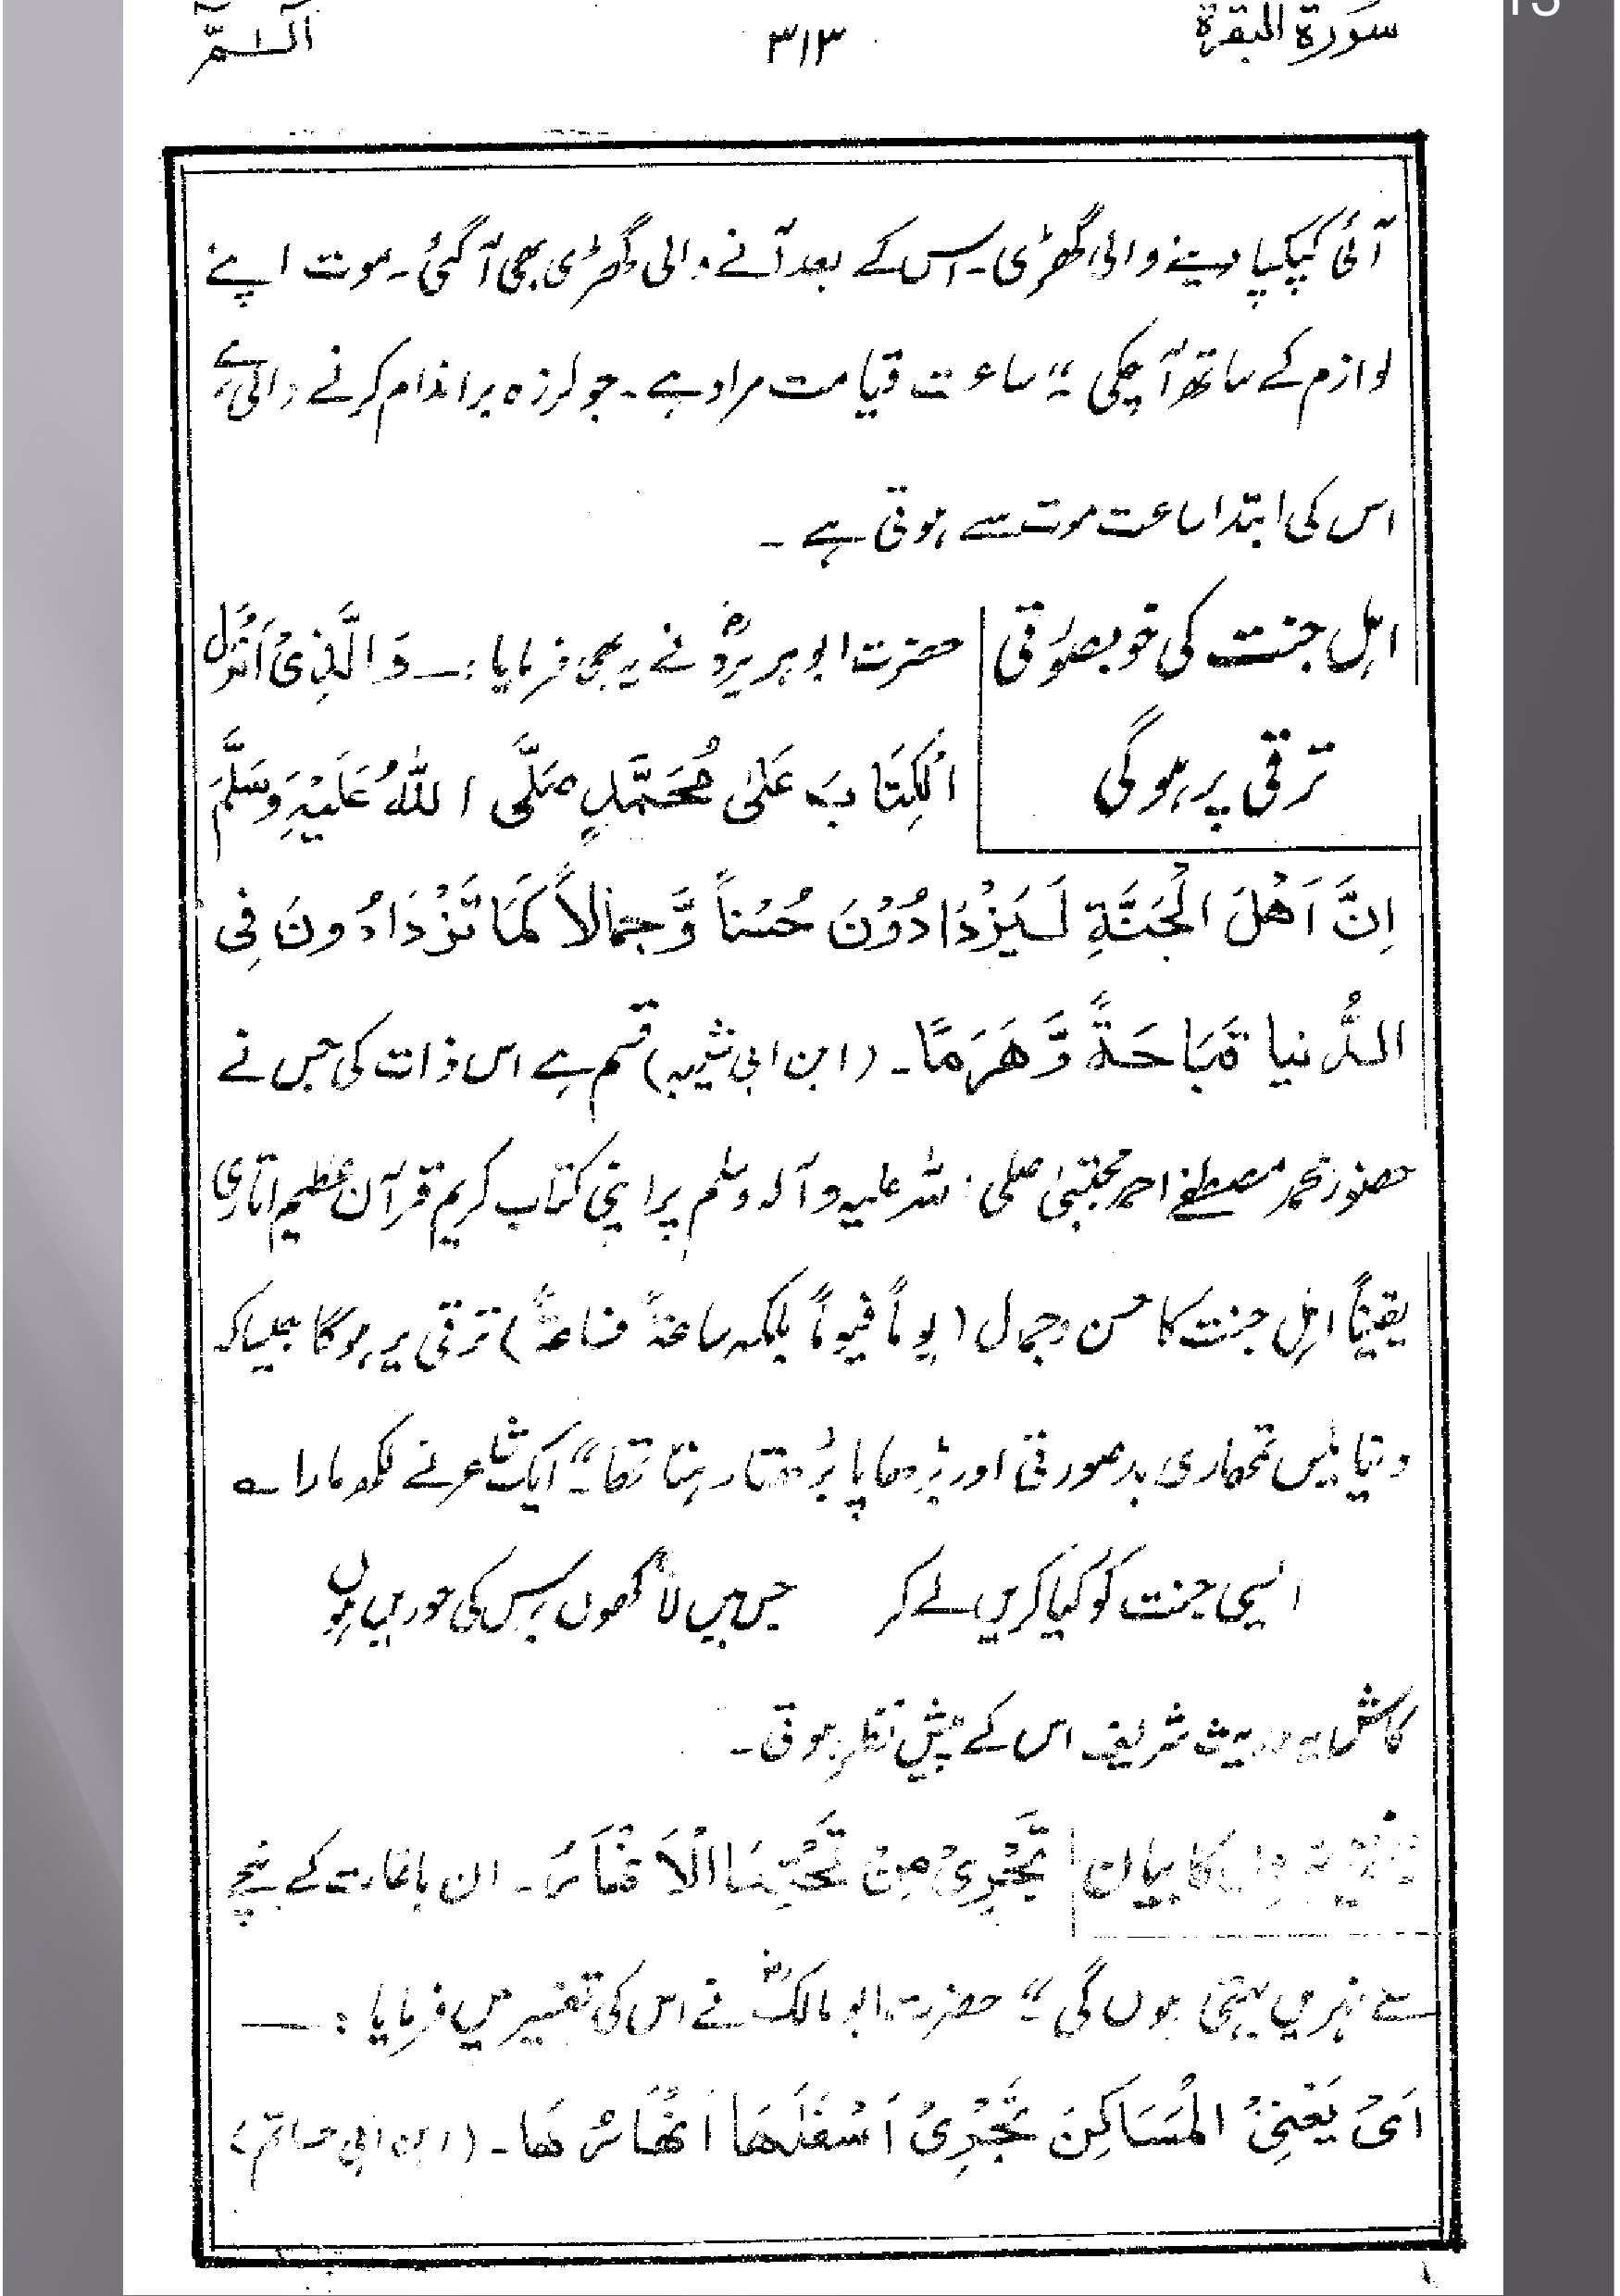 سورة البقرة ۳۱۳ الٓـمّٓ
آئی کپکپا دینے والی گھڑی۔ اس کے بعد آنے والی گھڑی بھی آگئی۔ موت اپنے
لوازم کے ساتھ آچکی‘‘ ساعت قیامت مراد ہے۔ جو لرزہ براندام کرنے والی ہے،
اس کی ابتدا ساعت موت سے ہوتی ہے۔
اہل جنت کی خوبصورتی
ترقی پر ہوگی
حضرت ابوہریرہؓ نے یہ بھی فرمایا:۔ وَالَّذِیْ اَنْزَلَ
الْکِتَابَ عَلیٰ مُحَمَّدٍ صَلَّی اللّٰهُ عَلَیْہِ وَسَلَّمَ
اِنَّ اَھْلَ الْجَنَّةِ لَیَزْدَادُوْنَ حُسْناً وَّجَمَالاً کَمَا تَزْدَادُونَ فِی
الدُّنیا قَبَاحَةً وَّھَرَمًا۔ (ابن ابی شیبہ) قسم ہے اس ذات کی جس نے
حضور محمد مصطفےٰ احمد مجتبیٰ صلی اللہ علیہ وآلہ وسلم پر اپنی کتاب کریم قرآن عظیم اتاری
یقیناً اہل جنت کا حسن وجمال (یوماً فیوماً بلکہ ساعۃً فساعۃً) ترقی پر ہوگا جیسا کہ
دنیا میں تمھاری بدصورتی اور بڑھاپا بڑھتا رہتا تھا‘‘ ایک شاعر نے لکھ مارا ؎
ایسی جنت کو کیا کریں لے کر جس میں لاکھوں برس کی حوریں ہوں
کاش یہ حدیث شریف اس کے پیش نظر ہوتی۔
کا بیان تَجْرِیْ مِنْ تَحْتِهَا الْاَنْهَارُ۔ ان باغات کے نیچے
سے نہریں بہتی ہوں گی‘‘ حضرت ابو مالکؓ نے اس کی تفسیر میں فرمایا:۔
اَیْ یَعْنِیْ الْمَسَاکِنَ تَجْرِیْ اَسْفَلَھَا اَنْھَارُھَا۔ (ابن ابی حاتم)